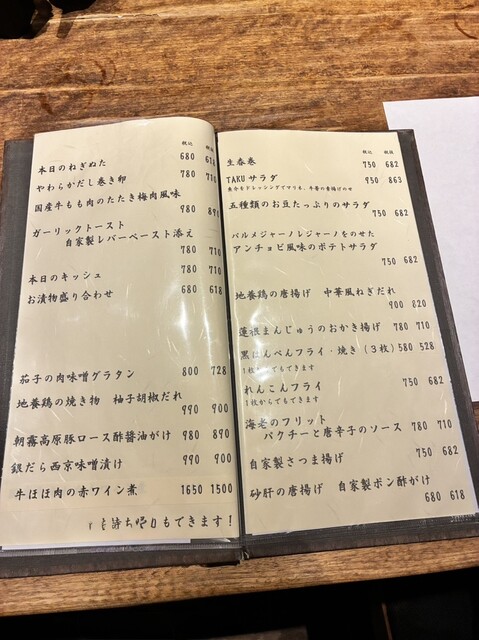 税込 税抜
本日のねぎぬた 680 618
やわらかだし巻き卵 780 710
国産牛もも肉のたたき梅肉風味
980 891
ガーリックトースト
自家製レバーペースト添え
780 710
本日のキッシュ 780 710
お漬物盛り合わせ 680 618
茄子の肉味噌グラタン 800 728
地養鶏の焼き物 柚子胡椒だれ
990 900
朝霧高原豚ロース酢醤油がけ 980 890
銀だら西京味噌漬け 990 900
牛ほほ肉の赤ワイン煮 1650 1500
お持ち帰りもできます!
税込 税抜
生春巻 750 682
TAKUサラダ 950 863
五種類のお豆たっぷりのサラダ
750 682
パルメジャーノレジャーノをのせた
アンチョビ風味のポテトサラダ
750 682
地養鶏の唐揚げ 中華風ねぎだれ
900 820
蓮根まんじゅうのおかき揚げ 780 710
黒はんぺんフライ・焼き(3枚) 580 528
1枚からでもできます
れんこんフライ 750 682
1枚からでもできます
海老のフリット
パクチーと唐辛子のソース 780 710
自家製さつま揚げ 750 682
砂肝の唐揚げ 自家製ポン酢がけ
680 618